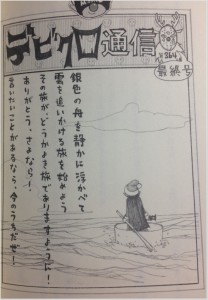 デビクロ通信
#364
最終号
銀色の舟を静かに浮かべて
雲を追いかける旅を始めよう
その旅が、どうかよき旅でありますように!
ありがとう、さよなら!
言いたいことがあるなら、今のうちだぜ!